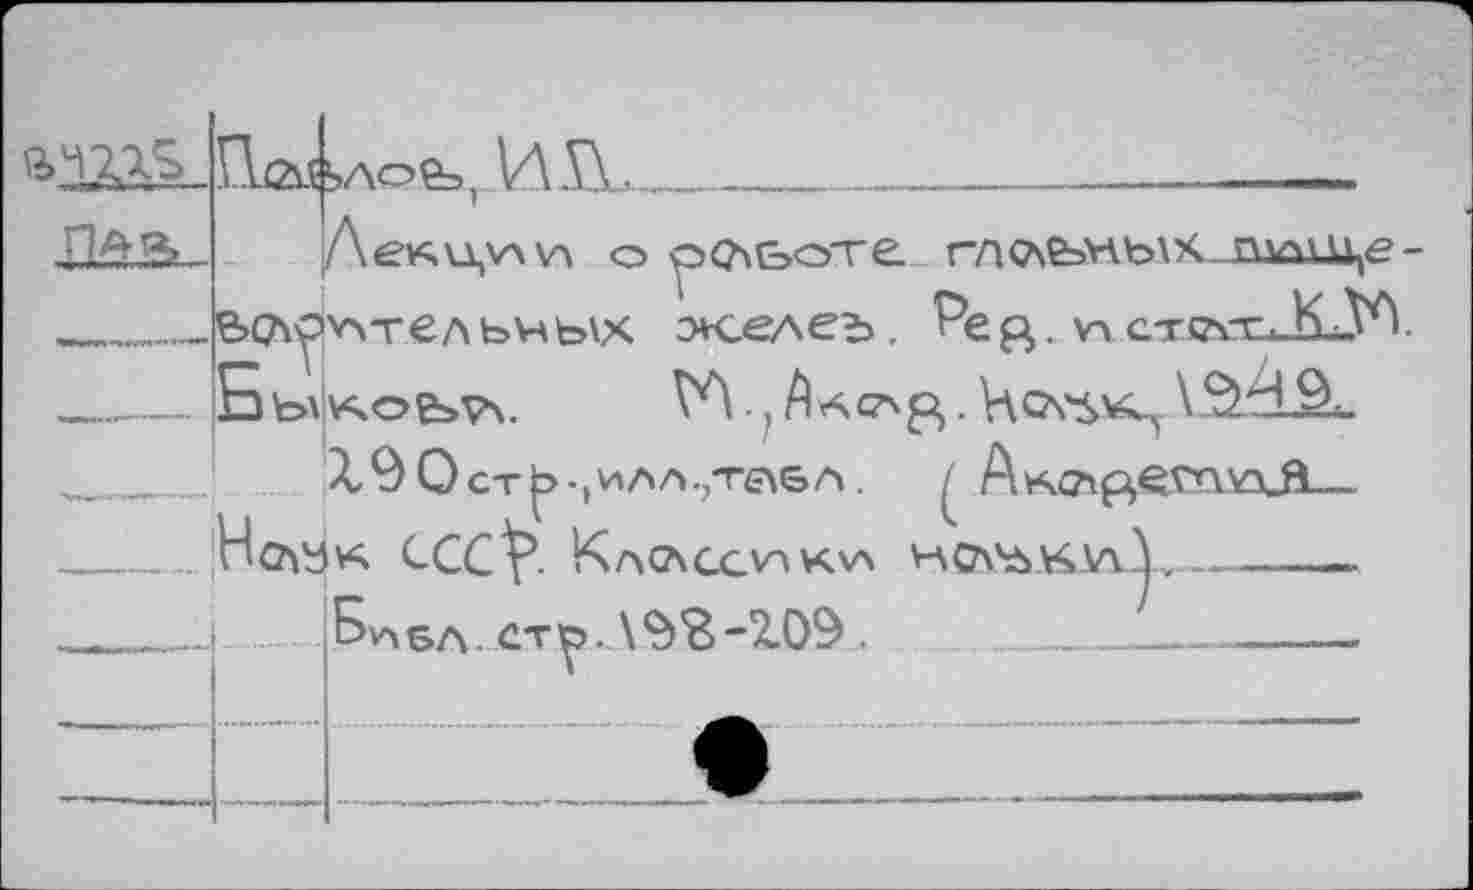 в4225 Павлов, И.П.
Пав Лекции о работе главных пище-
варительных желез. Ред. и стат. К.М.
Быкова. М., Акад. Наук, 1949.
290 стр., илл., табл. (Академия
Наук СССР. Классики науки).
Библ. стр. 198-209.